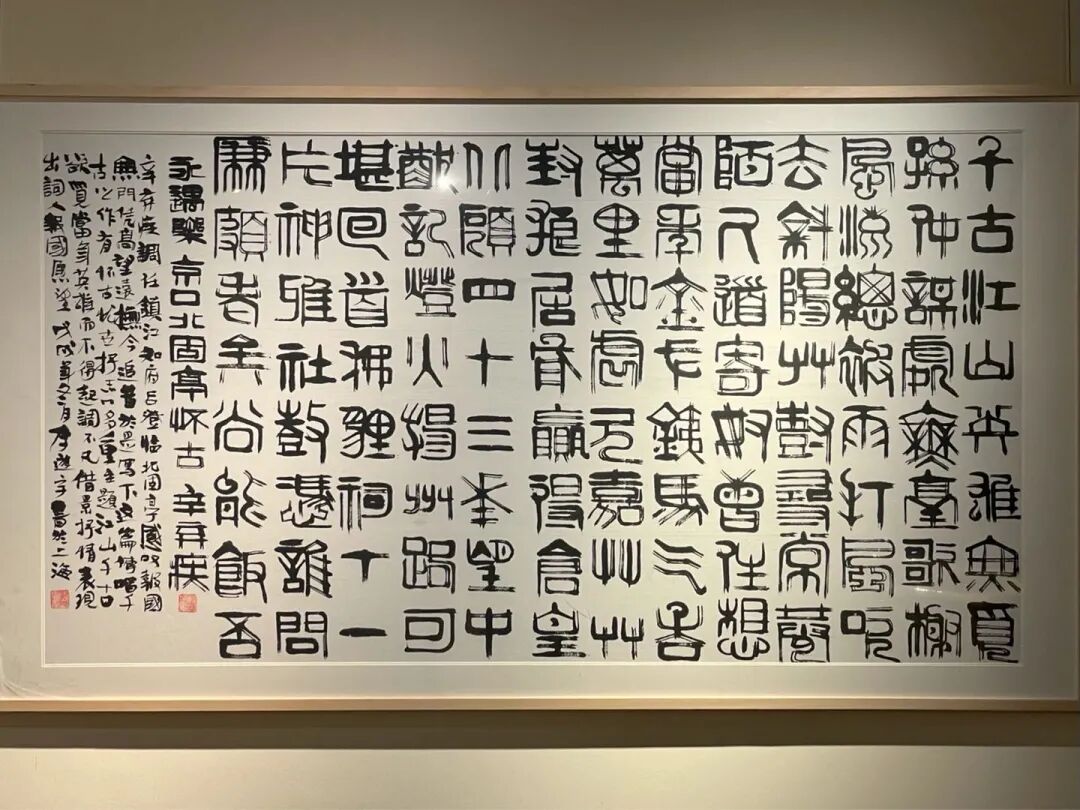 千古江山英雄無覓
孫仲謀處舞臺歌榭
風流總被雨打風吹
去斜陽艸樹尋常巷
陌人道寄奴曾住想
當年金戈鐵馬气吞
萬里如虎元嘉艸艸
封狼居胥贏得倉皇
北顧四十三年望中
猶記燈火揚州路可
堪回首狒貍祠下一
片神雅社鼓憑誰問
廉頗老矣尚能飯否
永遇樂京口北固亭怀古 辛弃疾
辛弃疾調任鎮江知府后登臨北固亭感叹報國
無門凭高望遠撫今追昔於是寫下這篇傳唱千
古之作有怀古忧世抒志多重主題江山千古
欲覓當年英雄而不得起調不凡借景抒情表現
出詞人報國愿望 戊戌年冬月李遊宇書於上海